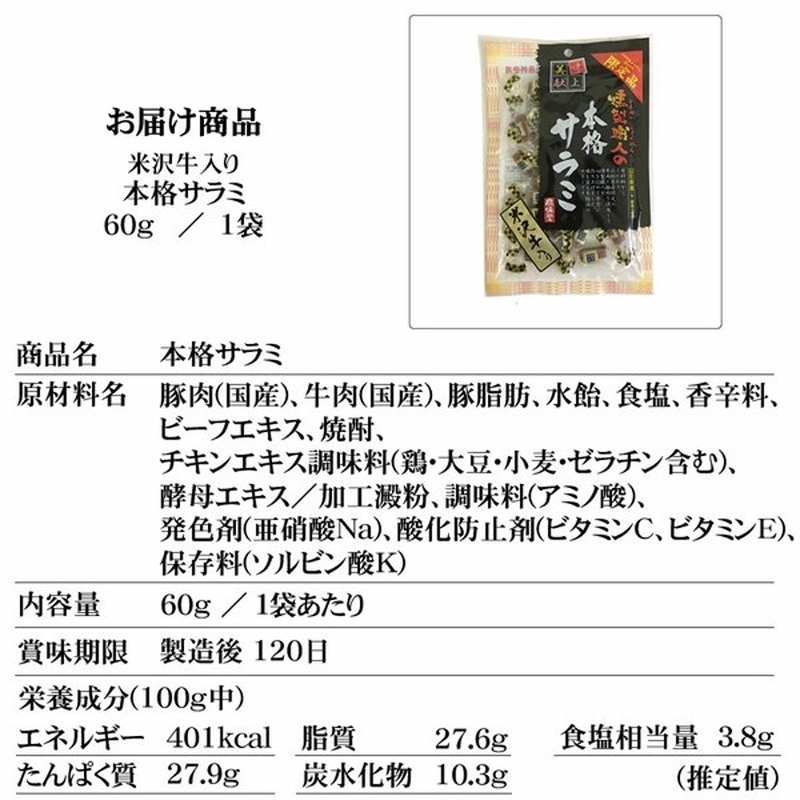 お届け商品
米沢牛入り
本格サラミ
60g ／ 1袋
限定品
献上
燻製職人の
本格
サラミ
米沢牛入り
商品名 本格サラミ
原材料名 豚肉(国産)、牛肉(国産)、豚脂肪、水飴、食塩、香辛料、
ビーフエキス、焼酎、
チキンエキス調味料(鶏・大豆・小麦・ゼラチン含む)、
酵母エキス／加工澱粉、調味料(アミノ酸)、
発色剤(亜硝酸Na)、酸化防止剤(ビタミンC、ビタミンE)、
保存料(ソルビン酸K)
内容量 60g ／ 1袋あたり
賞味期限 製造後 120日
栄養成分(100g中)
エネルギー 401kcal 脂質 27.6g 食塩相当量 3.8g
たんぱく質 27.9g 炭水化物 10.3g (推定値)